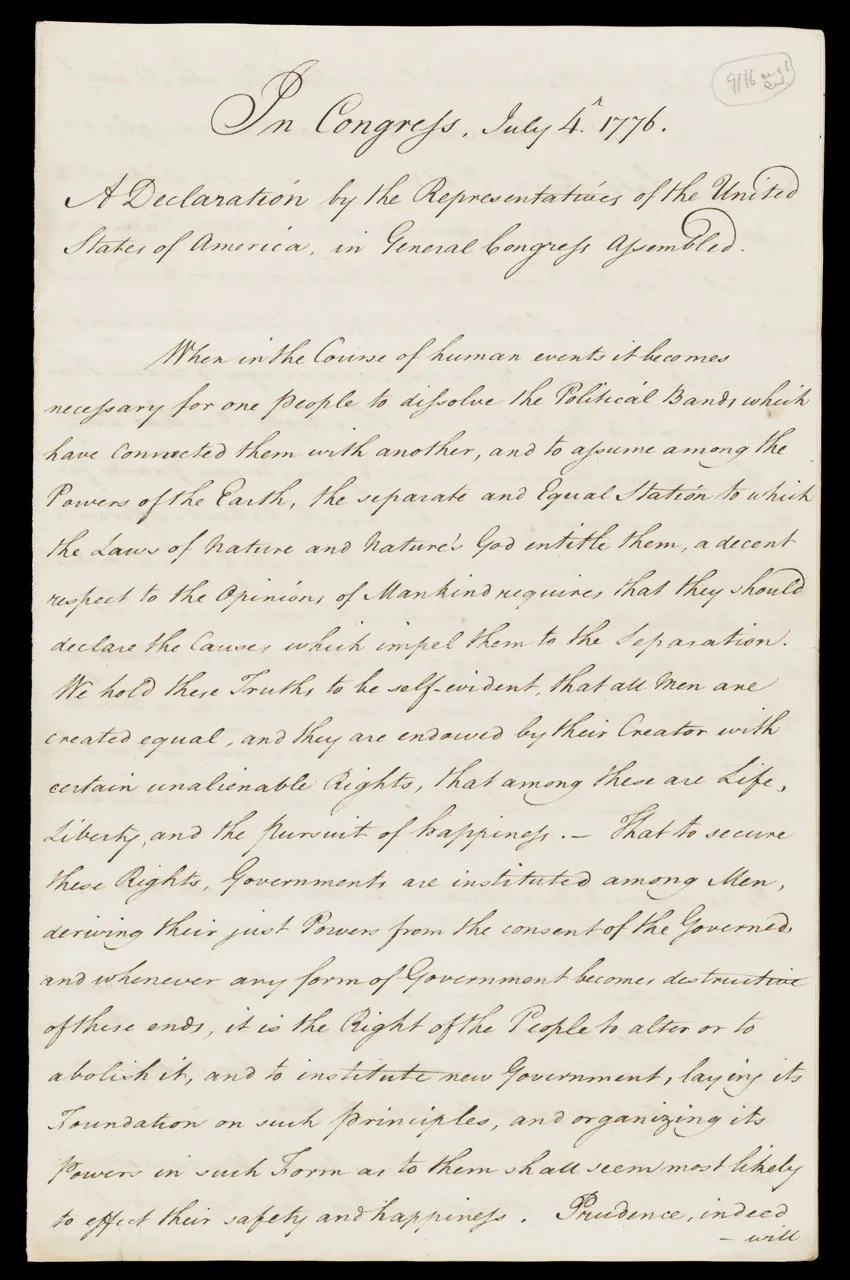 In Congress, July 4. 1776.
A Declaration by the Representatives of the United
States of America, in General Congress assembled.
When in the Course of human events it becomes
necessary for one People to dissolve the Political Bands which
have connected them with another, and to assume among the
Powers of the Earth, the separate and Equal Station to which
the Laws of Nature and Nature's God entitle them, a decent
respect to the Opinions of Mankind requires that they should
declare the Causes which impel them to the Separation.
We hold these Truths to be self-evident, that all Men are
created equal, and they are endowed by their Creator with
certain unalienable Rights, that among these are Life,
Liberty, and the pursuit of happiness. — That to secure
these Rights, Governments are instituted among Men,
deriving their just Powers from the consent of the Governed,
and whenever any form of Government becomes destructive
of these ends, it is the Right of the People to alter or to
abolish it, and to institute new Government, laying its
Foundation on such principles, and organizing its
Powers in such Form as to them shall seem most likely
to effect their safety and happiness. Prudence, indeed
— will